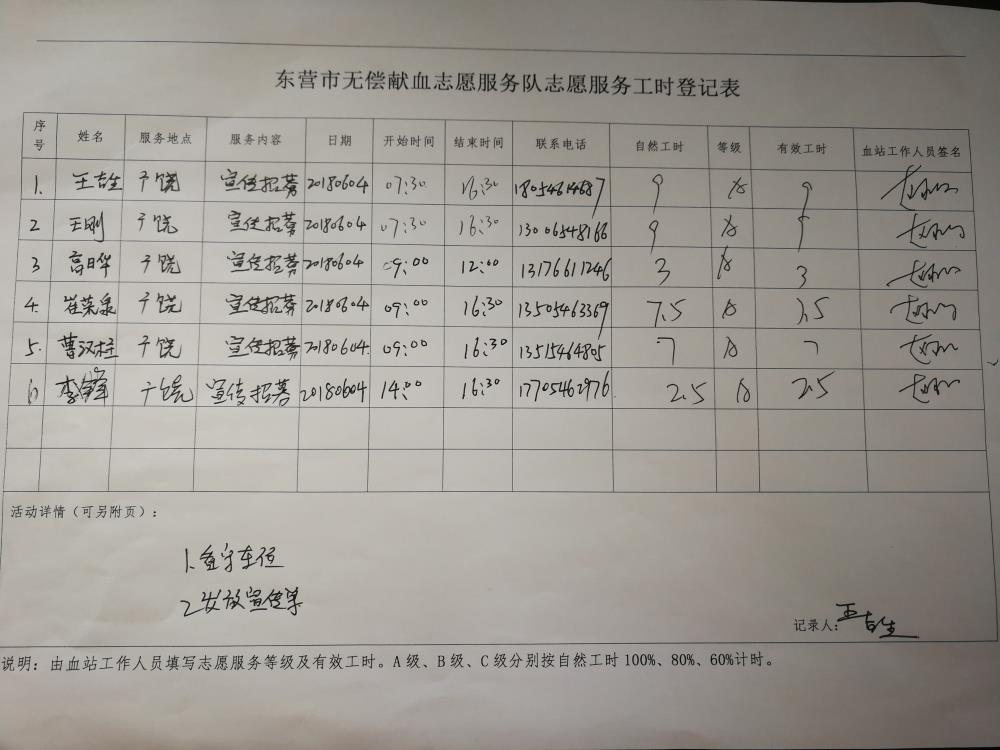 东营市无偿献血志愿服务队志愿服务工时登记表
序号 姓名 服务地点 服务内容 日期 开始时间 结束时间 联系电话 自然工时 等级 有效工时 血站工作人员签名
1. 王吉生 广饶 宣传招募 20180604 07:30 16:30 18054614687 9 A 9
2 王刚 广饶 宣传招募 20180604 07:30 16:30 13006548166 9 A 9
3 高日华 广饶 宣传招募 20180604 09:00 12:00 13176611246 3 A 3
4. 崔荣泉 广饶 宣传招募 20180604 09:00 16:30 13505463369 7.5 A 7.5
5. 曹汉柱 广饶 宣传招募 20180604 09:00 16:30 13515464805 7 A 7
6 李锋 广饶 宣传招募 20180604 14:00 16:30 17705462976 2.5 A 2.5
活动详情（可另附页）：
1.看守车位
2.发放宣传单
记录人：王吉生
说明：由血站工作人员填写志愿服务等级及有效工时。A 级、B 级、C 级分别按自然工时 100%、80%、60%计时。